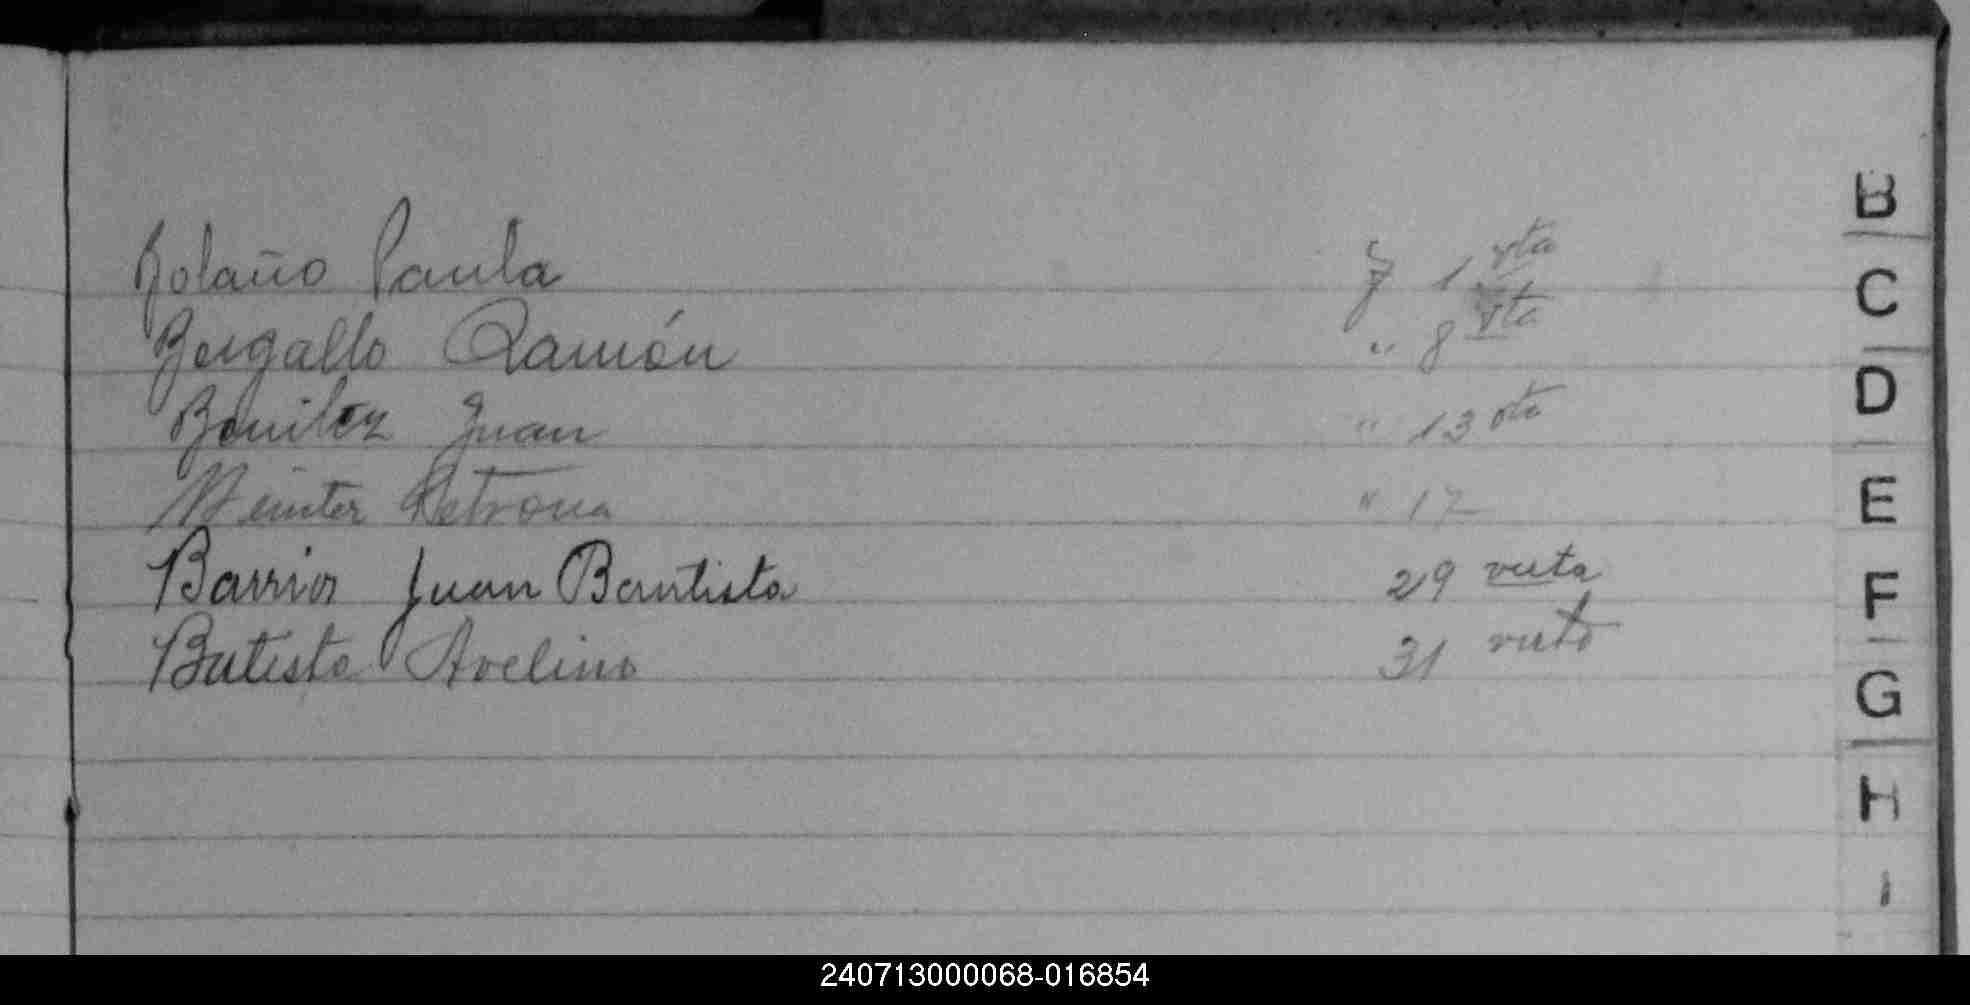 Bolaño Paula f 1 vta
Bergallo Ramón " 8 vta
Benitez Juan " 13 vta
Petrona " 17
Barrios Juan Bautista 29 vuta
Batista Avelino 31 vuta
B
C
D
E
F
G
H
I
240713000068-016854